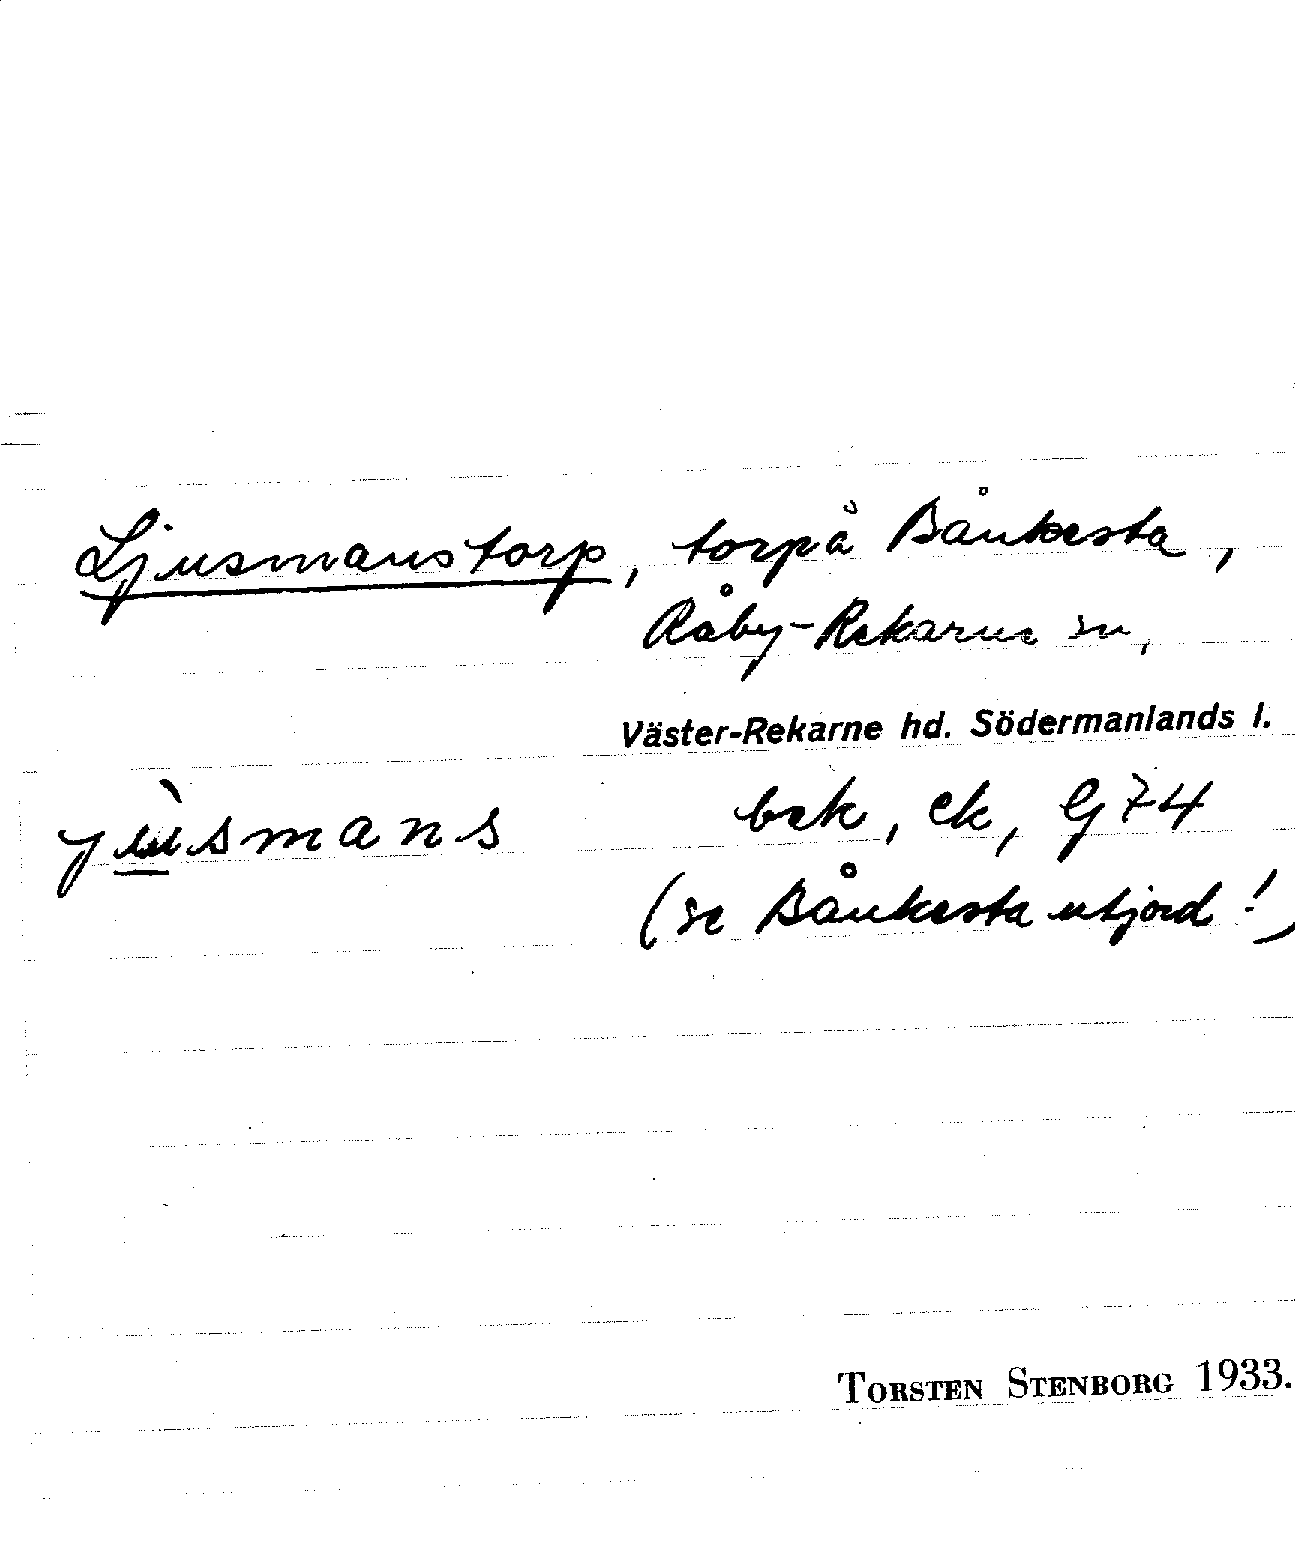 Ljusmanstorp, torp å Bånkesta,
Råby-Rekarne sn,
Väster-Rekarne hd. Södermanlands l.
jùsmans bek, ek, G 74
(se Bånkesta utjord!)
TORSTEN STENBORG 1933.